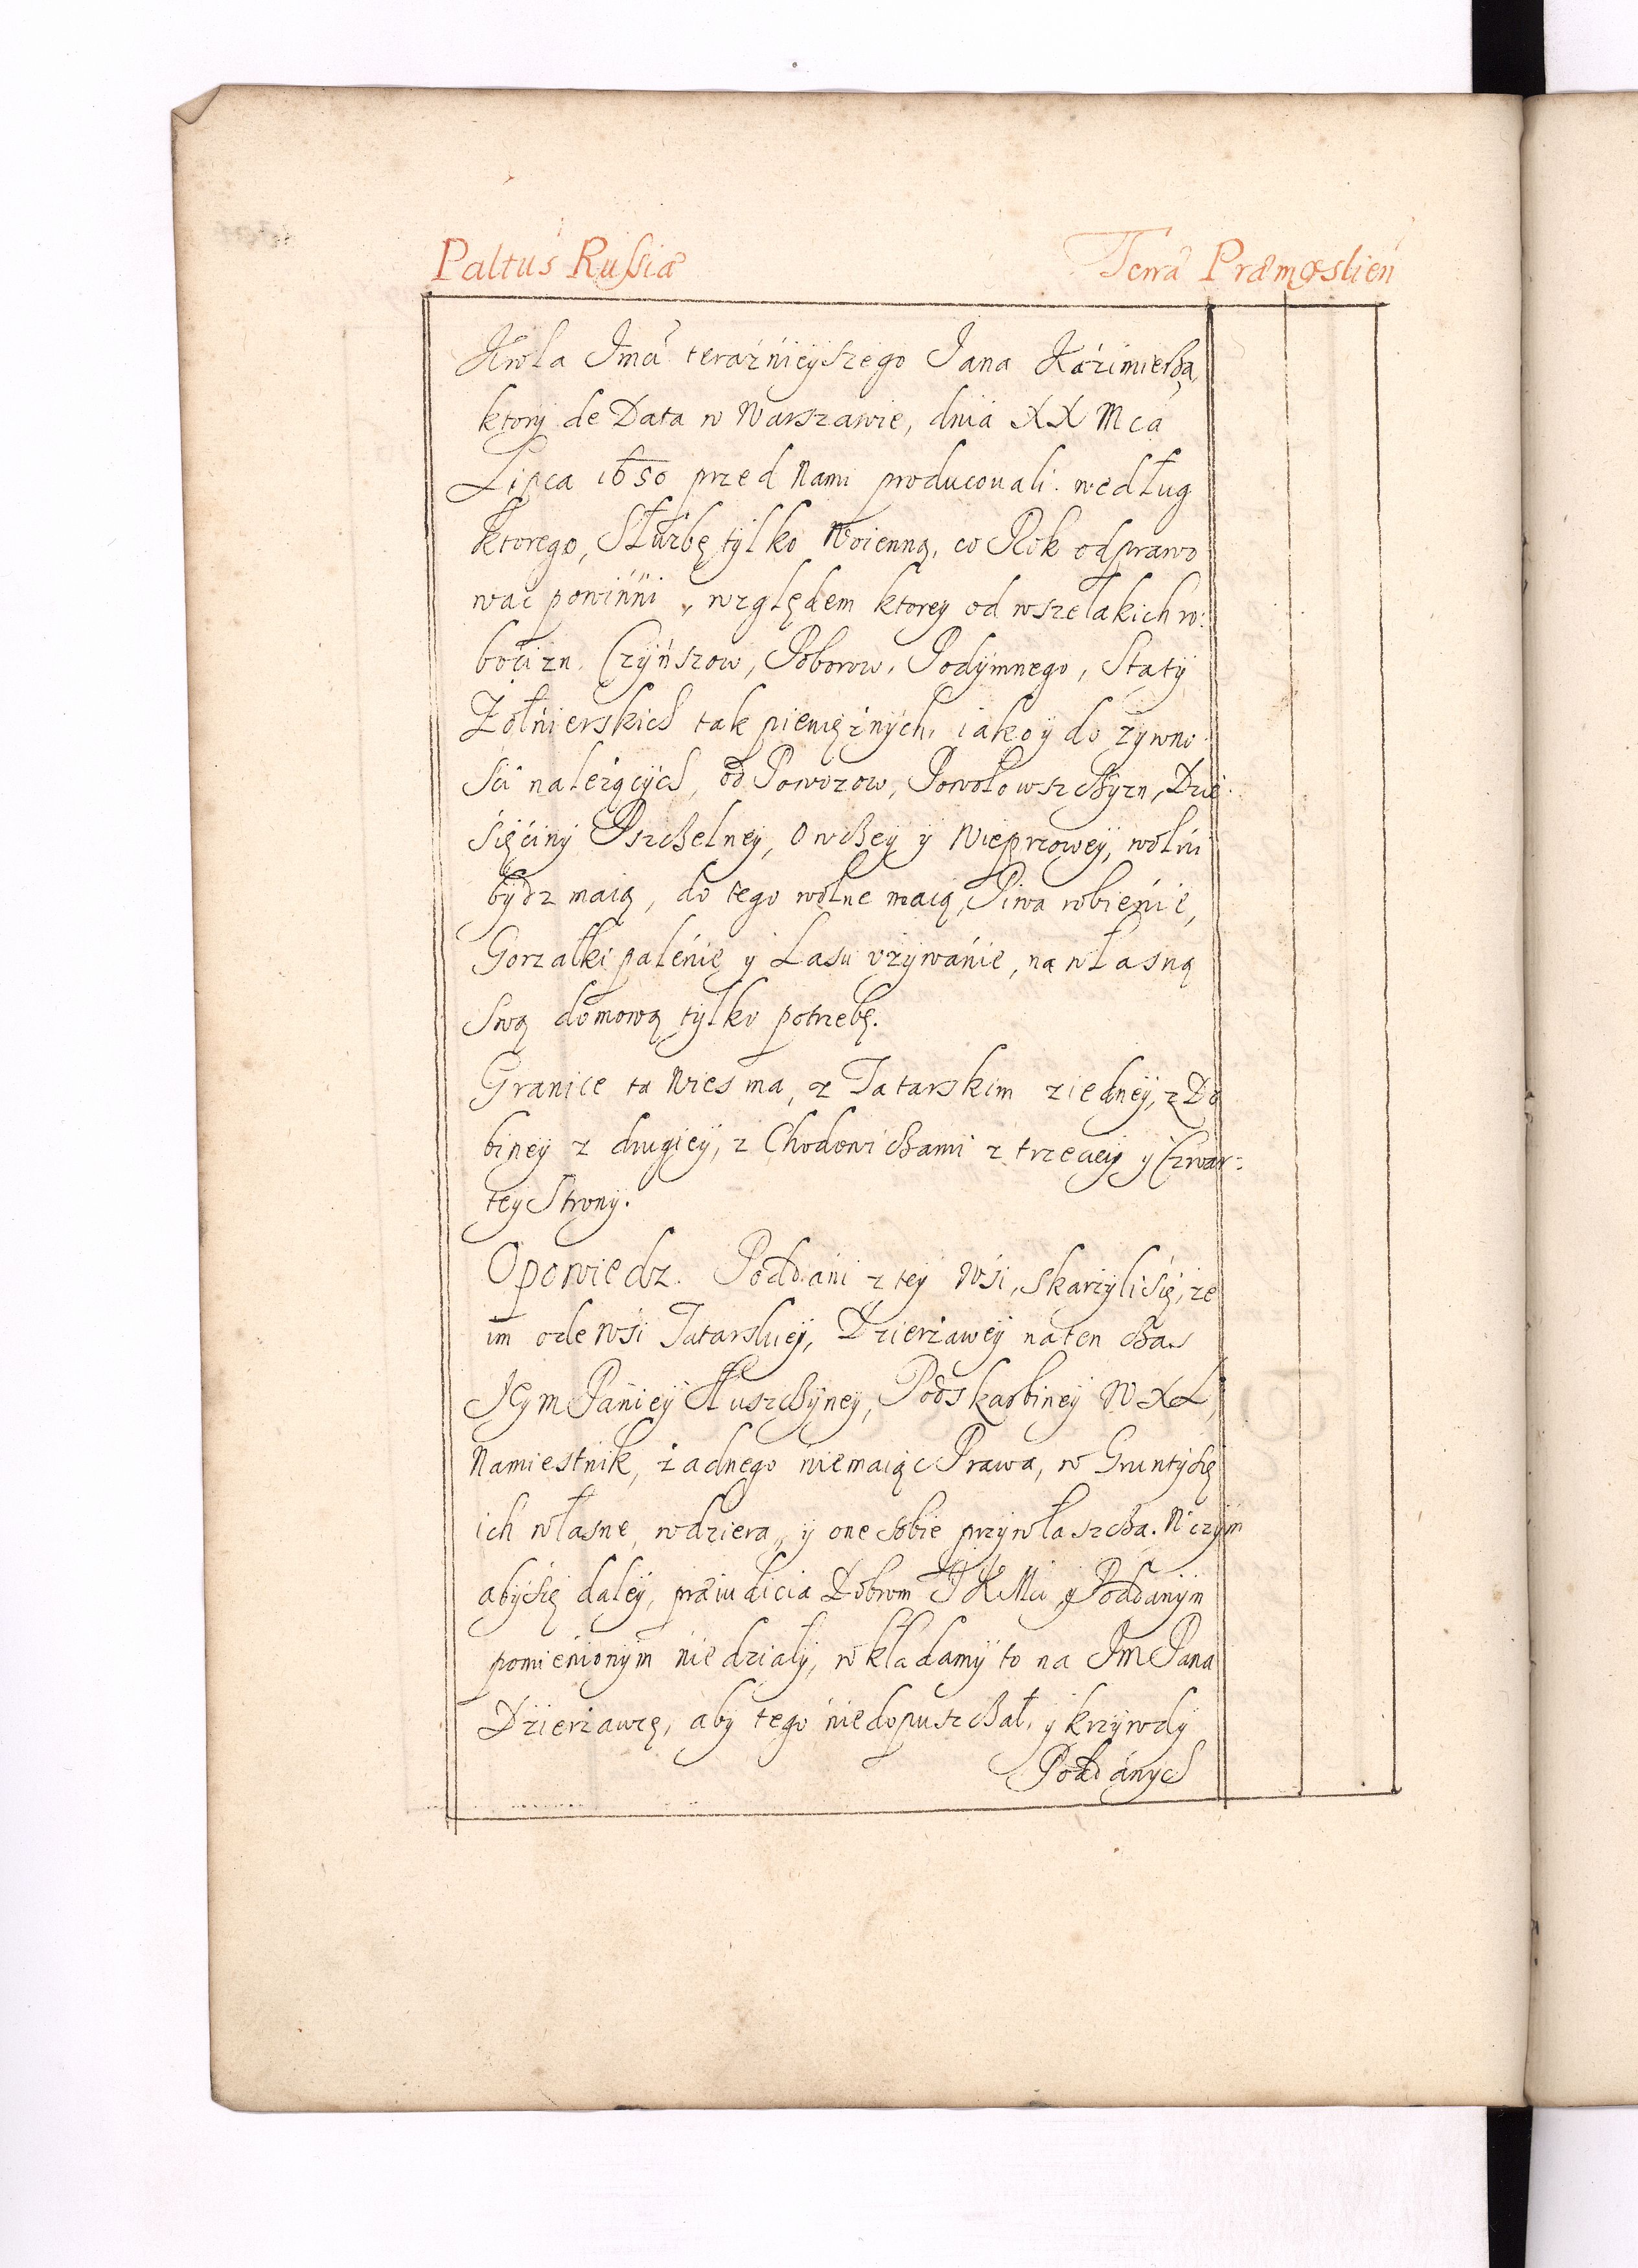 Paltus Russiæ Terra Præmyslien
Krola Jmci teraźnieyszego Jana Kaźimierza,
ktory de Data w Warszawie, dnia XX Mca
Lipca 1650 przed Nami producowali. według
ktorego, Służbę tylko Woienną, co Rok odprawo
wać powinni, względem ktorey od wszelakich ro:
boćizn, Czynszow, Poborow, Podymnego, Staty
Żołnierskich tak pieniężnych, iako y do żywno
sći należących, od Powozow, Powołowszczyzn, Dzie:
śięćiny Pszczelney, Owczey y Wieprzowey, wolni
bydz maią, do tego wolne maią, Piwa robienie,
Gorzałki palenie y Lasu vżywanie, na własną
Swą domową tylko potrzebę.
Granice ta Wies ma, z Tatarskim ziedney, z Do
biney z drugiey, z Chodowiczami z trzeciey y Czwar:
tey Strony.
Opowiedz. Poddani z tey Wsi, skarżyli się, że
im ode Wsi Tatarskiey, Dzierżawey naten czas
JeyM Paniey Tłuszczyney, Podskarbiney WXL,
Namiestnik, żadnego niemaiąc Prawa, w Grunty się
ich własne, wdziera, y one sobie przywłaszcza. Wczym
aby się daley, præiudicia Dobrom JKMci y Poddanym
pomienionym nie działy, wkładamy to na JmPana
Dzierżawcę, aby tego niedopuszczał, y krzywdy
Poddanych